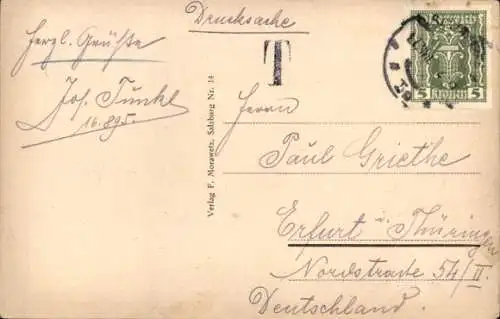 Drucksache
Herzl. Grüsse
Jos. Tünkl
16.895.
T
5 KRONEN 5
Verlag F. Morawetz, Salzburg Nr. 14
Herrn
Paul Griethe
Erfurt i. Thüringen
Nordstrasse 54/II.
Deutschland.